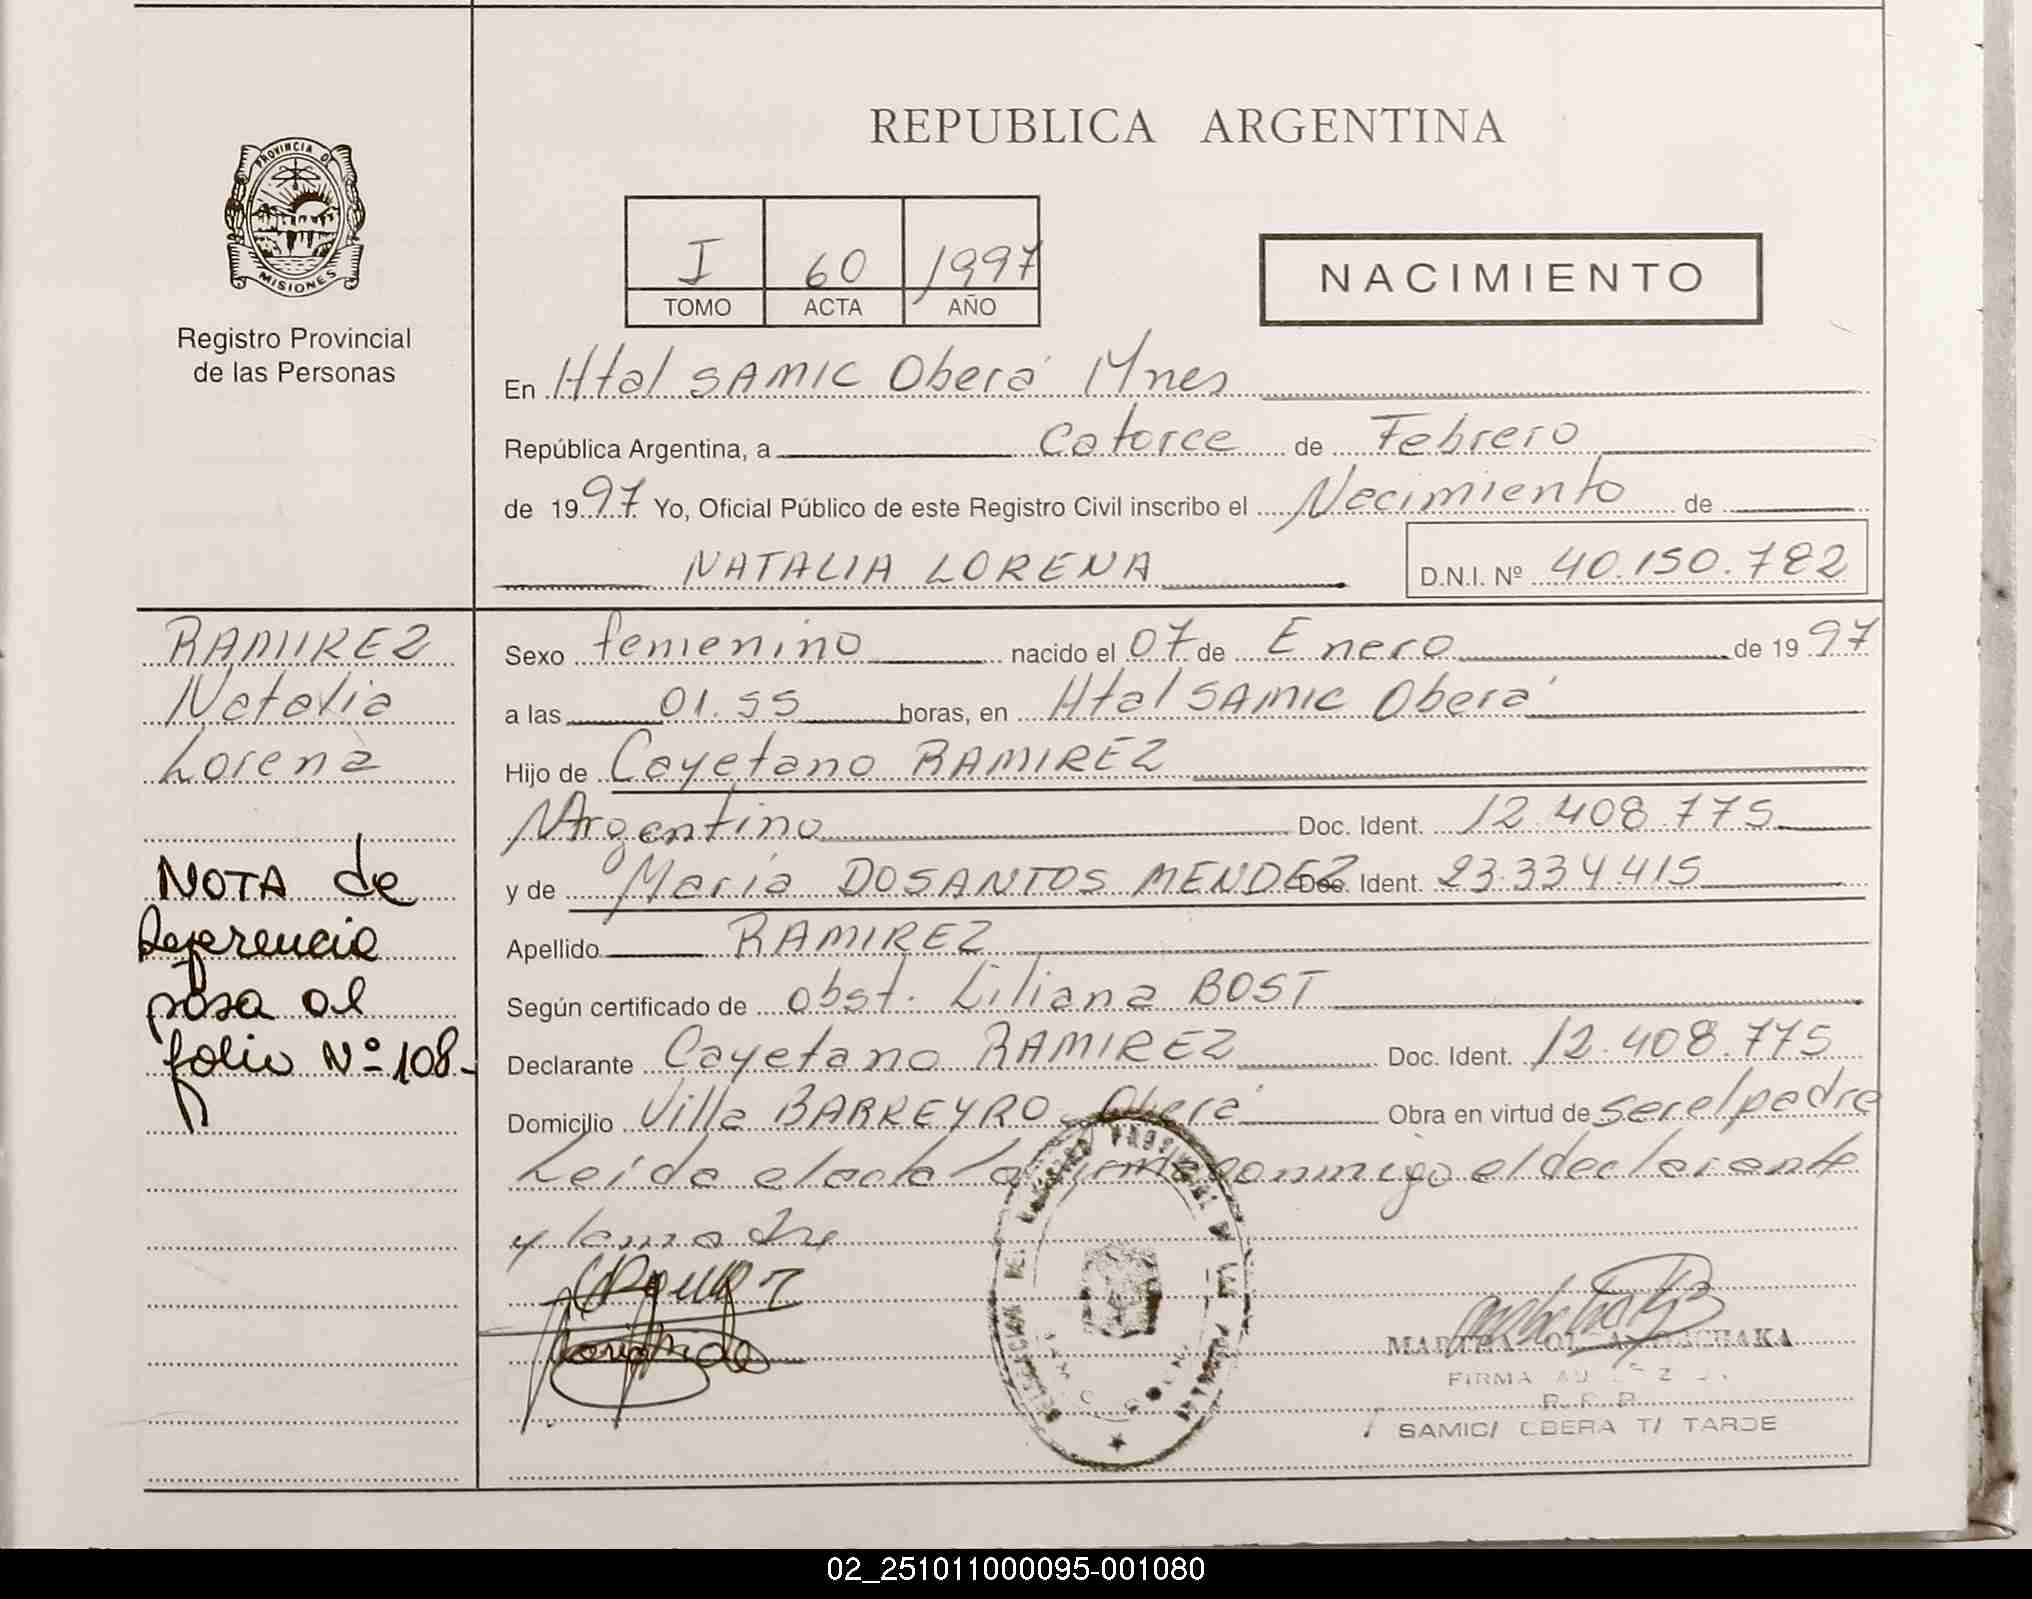 REPUBLICA ARGENTINA
PROVINCIA DE
MISIONES
Registro Provincial
de las Personas
I 60 1997
TOMO ACTA AÑO
NACIMIENTO
En Htal SAMIC Oberá Mnes
República Argentina, a catorce de Febrero
de 1997 Yo, Oficial Público de este Registro Civil inscribo el Nacimiento de
NATALIA LORENA D.N.I. Nº 40.150.782
RAMIREZ
Natalia
Lorena
NOTA de
Referencia
pasa al
folio Nº 108-
Sexo femenino nacido el 07 de Enero de 1997
a las 01.55 horas, en Htal SAMIC Oberá
Hijo de Cayetano RAMIREZ
Argentino Doc. Ident. 12.408.775
y de Maria DOSANTOS MENDEZ Doc. Ident. 23.334.415
Apellido RAMIREZ
Según certificado de obst. Liliana BOST
Declarante Cayetano RAMIREZ Doc. Ident. 12.408.775
Domicilio Villa BARREYRO Oberá Obra en virtud de ser el padre
Leida el acta la firma conmigo el declarante
y la madre
MARTHA
FIRMA
SAMIC/ OBERA T/ TARDE
02_251011000095-001080